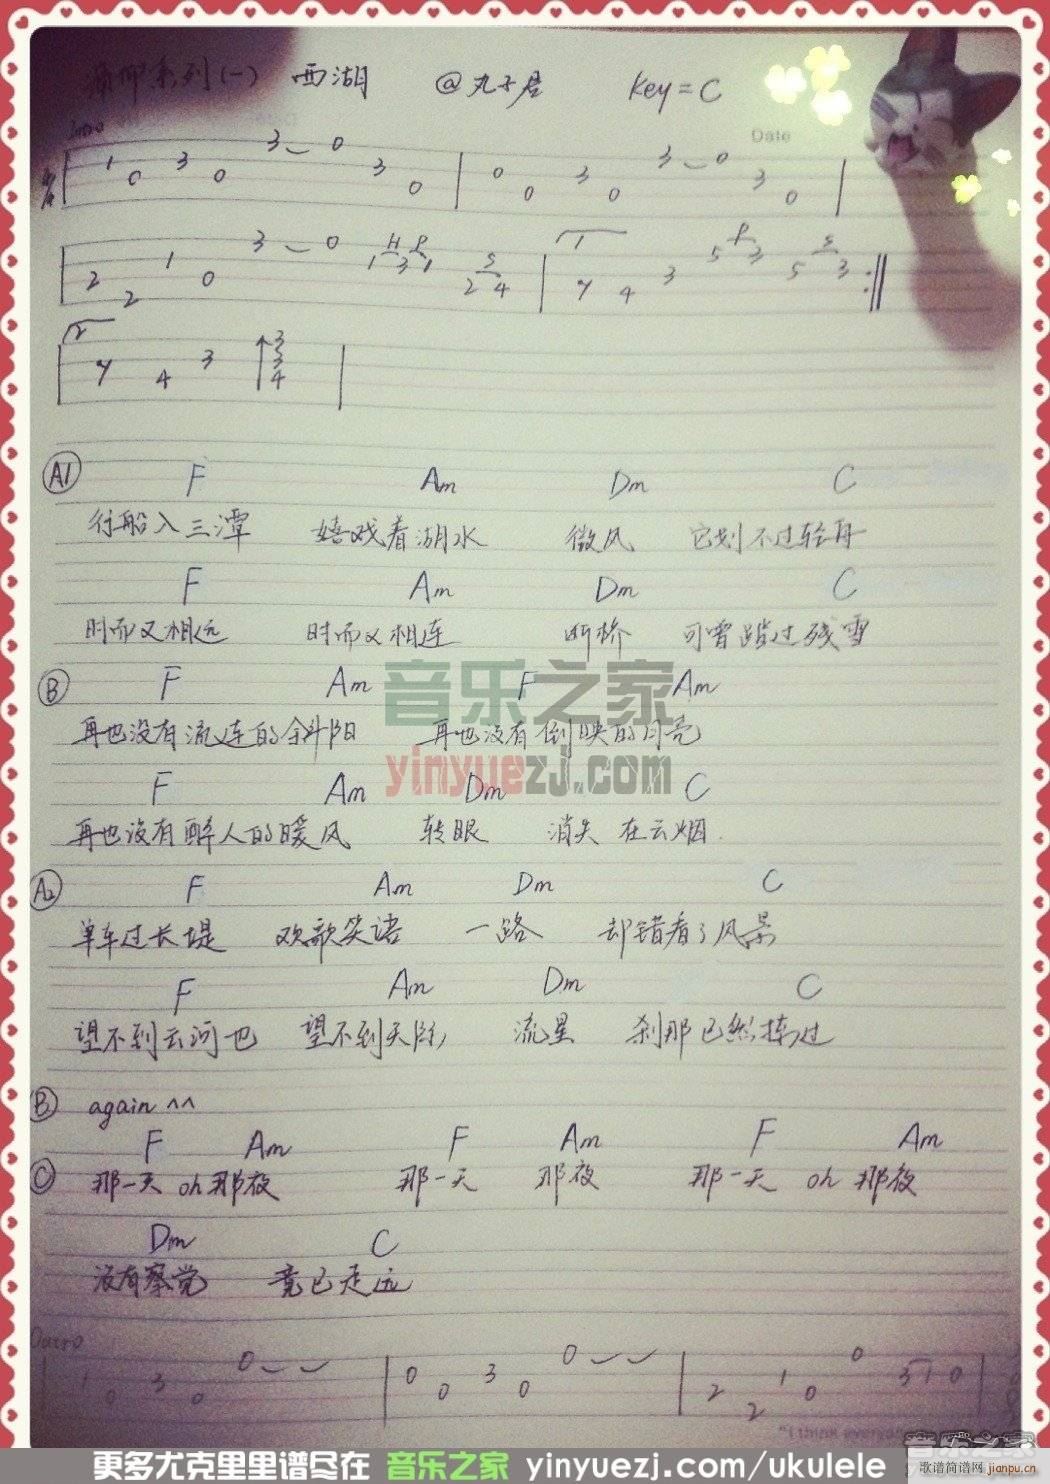 系列(一) 西湖 @丸子君 Key=C
Intro
Date
1 0 3 0 3 0 3 0 0 0 3 0 3 0 3 0
H P S 1 P S
2 2 1 0 3 0 1 3 1 2 4 7 4 3 5 3 5 3
2
7 4 3 3 3 4
A1 F Am Dm C
行船入三潭 嬉戏着湖水 微风 它划不过轻舟
F Am Dm C
时而又相远 时而又相连 断桥 可曾踏过残雪
B F Am F Am
再也没有流连的斜阳 再也没有倒映的月亮
F Am Dm C
再也没有醉人的暖风 转眼 消失 在云烟
A2 F Am Dm C
单车过长堤 欢歌笑语 一路 却错看了风景
F Am Dm C
望不到云河也 望不到天际 流星 刹那已然掠过
B again ^^
F Am F Am F Am
C 那一天 oh 那夜 那一天 那夜 那一天 oh 那夜
Dm C
没有察觉 竟已走远
Outro
1 0 3 0 0 0 0 3 0 0 2 2 1 0 0 3 1 0
"I think every
音乐之家
yinyuezj.com
音乐之家
歌谱简谱网
jianpu.cn
更多尤克里里谱尽在 音乐之家 yinyuezj.com/ukulele